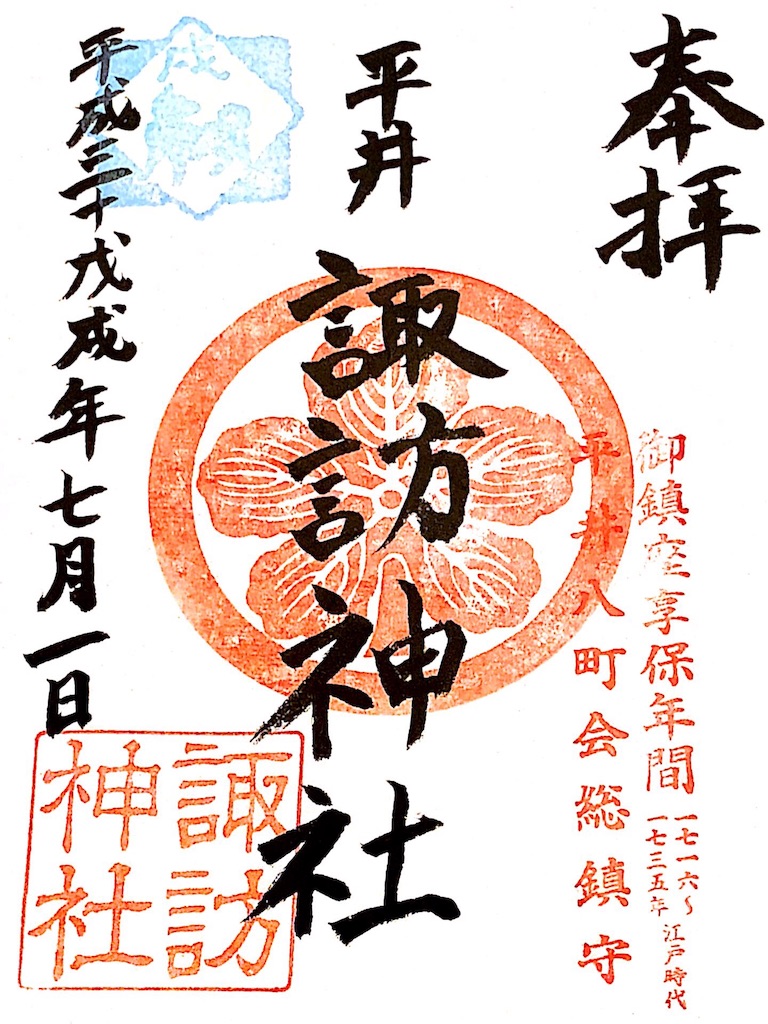 奉拝
御鎮座享保年間 一七一六〜
一七三五年 江戸時代
平井八町会総鎮守
平井
諏訪神社
平成三十戊戌年七月一日
諏訪
神社